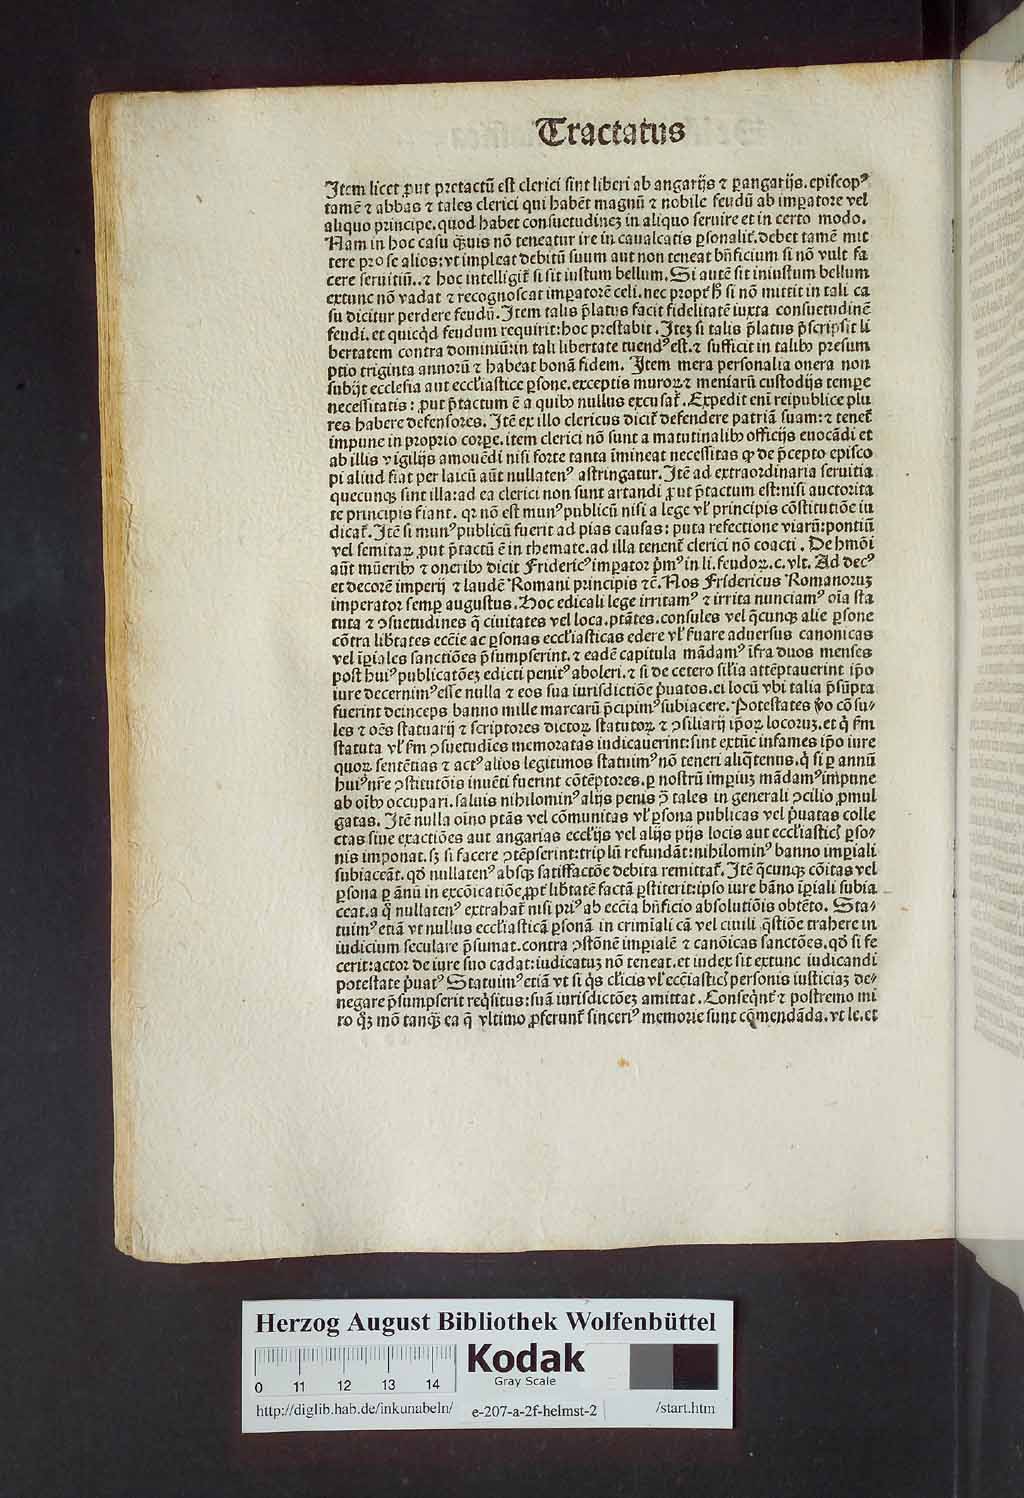 Tractatus
Item licet ꝓut pretactū est clerici sint liberi ab angarijs ⁊ ꝑangarijs. episcopꝰ
tamē ⁊ abbas ⁊ tales clerici qui habēt magnū ⁊ nobile feudū ab imꝑatore vel
aliquo principe. quod habet consuetudineꝫ in aliquo seruire et in certo modo.
Nam in hoc casu q̄uis nō teneatur ire in caualcatis ꝑsonalit̃. debet tamē mit
tere pro se alios: vt impleat debitū suum aut non teneat bn̄ficium si nō vult fa
cere seruitiū.. ⁊ hoc intelligit̃ si sit iustum bellum. Si autē sit iniustum bellum
extunc nō vadat ⁊ recognoscat imꝑatorē celi. nec propt̃ hͦ si nō mittit in tali ca
su dicitur perdere feudū. Item talis p̄latus facit fidelitatē iuxta consuetudinē
feudi. et quicq̇d feudum requirit: hoc prestabit. Iteꝫ si talis p̄latus p̄scripsit li
bertatem contra dominiū: in tali libertate tuendꝰ est. ⁊ sufficit in talibꝰ presum
ptio triginta annorū ⁊ habeat bonā fidem. Item mera personalia onera non
subijt ecclesia aut eccl̃iastice ꝑsone. exceptis muroꝝ ⁊ meniarū custodijs temꝑe
necessitatis: ꝓut p̄tactum ē a quibꝰ nullus excusat̃. Expedit enī reipublice plu
res habere defensores. Itē ex illo clericus dicit̃ defendere patriā suam: ⁊ tenet̃
impune in proprio corꝑe. item clerici nō sunt a matutinalibꝰ officijs euocādi et
ab illis vigilijs amouēdi nisi forte tanta īmineat necessitas ꝙ de p̄cepto episco
pi aliud fiat per laicū aūt nullatenꝰ astringatur. Itē ad extraordinaria seruitia
quecunqꝫ sint illa: ad ea clerici non sunt artandi ꝓut p̄tactum est: nisi auctorita
te principis fiant. qr nō est munꝰ publicū nisi a lege vl̃ principis cōstitutiōe iu
dicat̃. Itē si munꝰ publicū fuerit ad pias causas: puta refectione viarū: pontiū
vel semitaꝝ ꝓut p̄tactū ē in themate. ad illa tenent̃ clerici nō coacti. De hmōi
aūt mūeribꝰ ⁊ oneribꝰ dicit Fridericꝰ imꝑator p̄mꝰ in li. feudoꝝ. c. vlt. Ad decꝰ
et decorē imperij ⁊ laudē Romani principis ⁊c̄. Nos Fridericus Romanoruꝫ
imperator semꝑ augustus. Hoc edicali lege irritamꝰ ⁊ irrita nunciamꝰ oīa sta
tuta ⁊ ꝯsuetudines q̄ ciuitates vel loca. ptātes. consules vel q̄cunqꝫ alie ꝑsone
cōtra lib̃tates ecc̄ie ac ꝑsonas eccl̃iasticas edere vl̃ ẜuare aduersus canonicas
vel īꝑiales sanctiōes p̄sumpserint. ⁊ eadē capitula mādamꝰ īfra duos menses
post huiꝰ publicatōeꝫ edicti penitꝰ aboleri. ⁊ si de cetero sil̃ia attēptauerint ip̄o
iure decernimꝰ esse nulla ⁊ eos sua iurisdictiōe p̓uatos. ei locū vbi talia p̄sūpta
fuerint deinceps banno mille marcarū p̄cipimꝰ subiacere. Potestates ꝟo cōsu-
les ⁊ oēs statuarij ⁊ scriptores dictoꝝ statutoꝝ ⁊ ꝯsiliarij ip̄oꝝ locoruꝫ. et q̇ ẜm
statuta vl̃ ẜm ꝯsuetudīes memoratas iudicauerint: sint extūc infames ip̄o iure
quoꝝ sentētias ⁊ actꝰ alios legitimos statuimꝰ nō teneri aliq̄tenus. q̇ si ꝑ annū
huiꝰ nr̄e ꝯstitutōis inuēti fuerint cōtēptores. ꝑ nostrū imꝑiuꝫ mādamꝰ impune
ab oībꝰ occupari. saluis nihilominꝰ alijs penis ꝯ̄ tales in generali ꝯcilio ꝓmul
gatas. Itē nulla oīno ptās vel cōmunitas vl̃ ꝑsona publicas vel p̓uatas colle
ctas siue exactiōes aut angarias eccl̃ijs vel alijs pijs locis aut eccl̃iasticꝭ ꝑso-
nis imponat. sꝫ si facere ꝯtēpserint: triplū refundāt: nihilominꝰ banno imꝑiali
subiaceāt. qd̄ nullatenꝰ absqꝫ satisfactōe debita remittat̃. Itē q̄cunqꝫ cōitas vel
ꝑsona ꝑ ānū in excōicatiōe ꝓpt̃ lib̃tatē factā ꝑstiterit: ipso iure bāno īꝑiali subia
ceat. a q̊ nullatenꝰ extrahat̃ nisi priꝰ ab ecc̄ia bn̄ficio absolutiōis obtēto. Sta-
tuimꝰ etiā vt nullus eccl̃iasticā ꝑsonā in crimīali cā vel ciuili q̄stiōe trahere in
iudicium seculare p̄sumat. contra ꝯstōnē imꝑialē ⁊ canōicas sanctōes. qd̄ si fe
cerit: actor de iure suo cadat: iudicatuꝫ nō teneat. et iudex sit extunc iudicandi
potestate p̓uatꝰ Statuimꝰ etiā vt si q̇s cl̃icis vl̃ ecc̄iasticꝭ personis iusticiaꝫ de-
negare p̄sumpserit reqͥsitus: suā iurisdictōeꝫ amittat. Conseq̄nt̃ ⁊ postremo mi
ro q̄ꝫ mō tanq̄ꝫ ea q̄ vltimo ꝓferunt̃ sinceriꝰ memorie sunt cōmendāda. vt le. et
Herzog August Bibliothek Wolfenbüttel
0 11 12 13 14
Kodak
Gray Scale
http://diglib.hab.de/inkunabeln/ e-207-a-2f-helmst-2 /start.htm